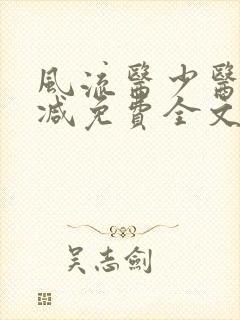 風流醫少醫
減免費全文
吴志劍